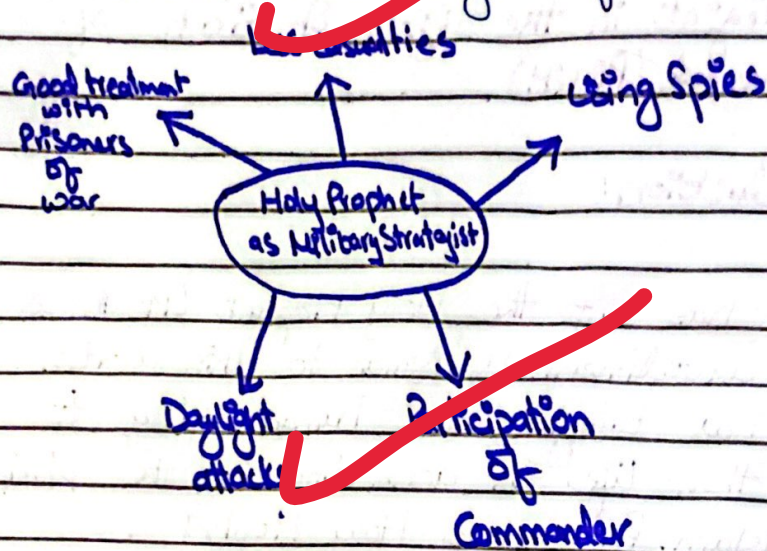 casualties
Good treatment
with
Prisoners
of
war
using Spies
Holy Prophet
as Military Strategist
Daylight
attacks
Participation
of
Commander